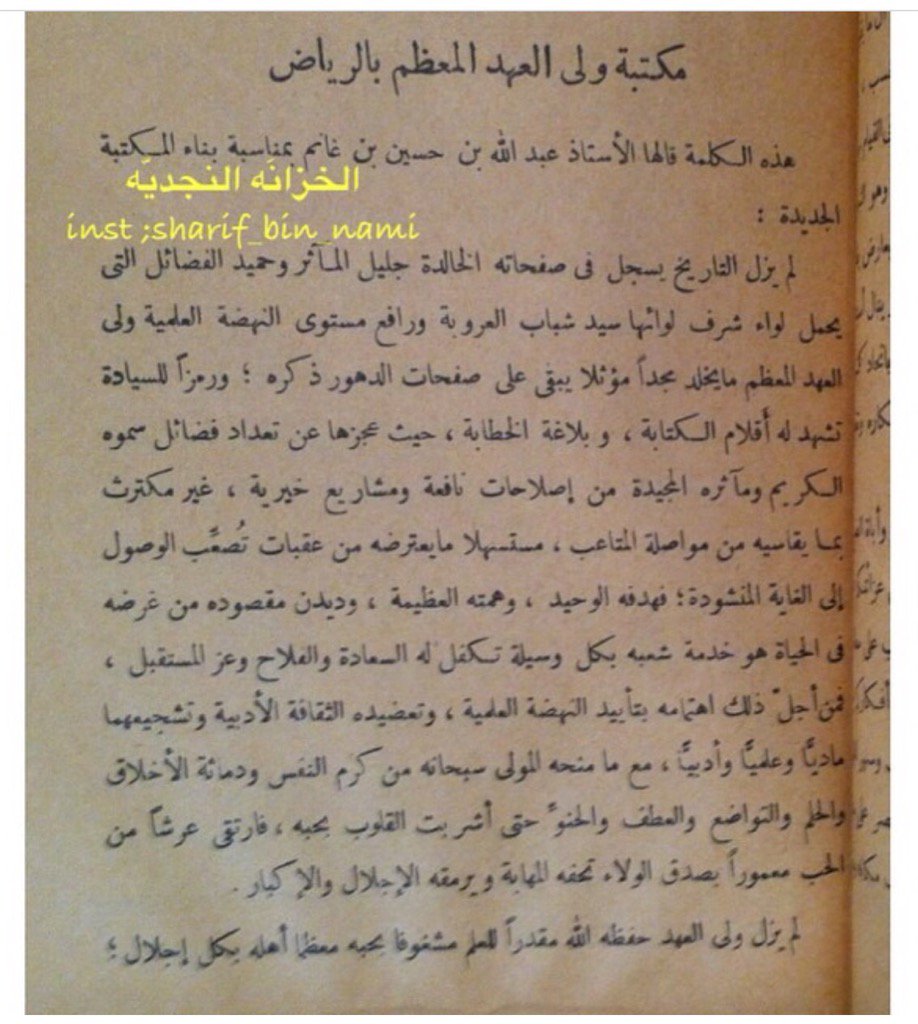 مكتبة ولى العهد المعظم بالرياض
هذه الكلمة قالها الأستاذ عبد الله بن حسين بن غانم بمناسبة بناء المكتبة
الخزانه النجديّه
inst ;sharif_bin_nami
الجديدة :
لم يزل التاريخ يسجل فى صفحاته الخالدة جليل المآثر وحميد الفضائل التى
يحمل لواء شرف لوائها سيد شباب العروبة ورافع مستوى النهضة العلمية ولى
العهد المعظم مايخلد مجداً مؤثلا يبقى على صفحات الدهور ذكره ؛ ورمزاً للسيادة
تشهد له أقلام الكتابة ، وبلاغة الخطابة ، حيث عجزها عن تعداد فضائل سموه
الكريم ومآثره المجيدة من إصلاحات نافعة ومشاريع خيرية ، غير مكترث
بما يقاسيه من مواصلة المتاعب ، مستسهلا مايعترضه من عقبات تُصعِّب الوصول
إلى الغاية المنشودة ؛ فهدفه الوحيد ، وهمته العظيمة ، وديدن مقصوده من غرضه
فى الحياة هو خدمة شعبه بكل وسيلة تكفل له السعادة والفلاح وعز المستقبل ،
فمن أجل ذلك اهتمامه بتأييد النهضة العلمية ، وتعضيده الثقافة الأدبية وتشجيعهما
ماديًّا وعلميًّا وأدبيًّا ، مع ما منحه المولى سبحانه من كرم النفس ودماثة الأخلاق
والحلم والتواضع والعطف والحنوّ حتى أشربت القلوب بحبه ، فارتقى عرشاً من
الحب معموراً بصدق الولاء تحفه المهابة ويرمقه الإجلال والإكبار .
لم يزل ولى العهد حفظه الله مقدراً للعلم مشغوفا بحبه معظما أهله بكل إجلال ؛